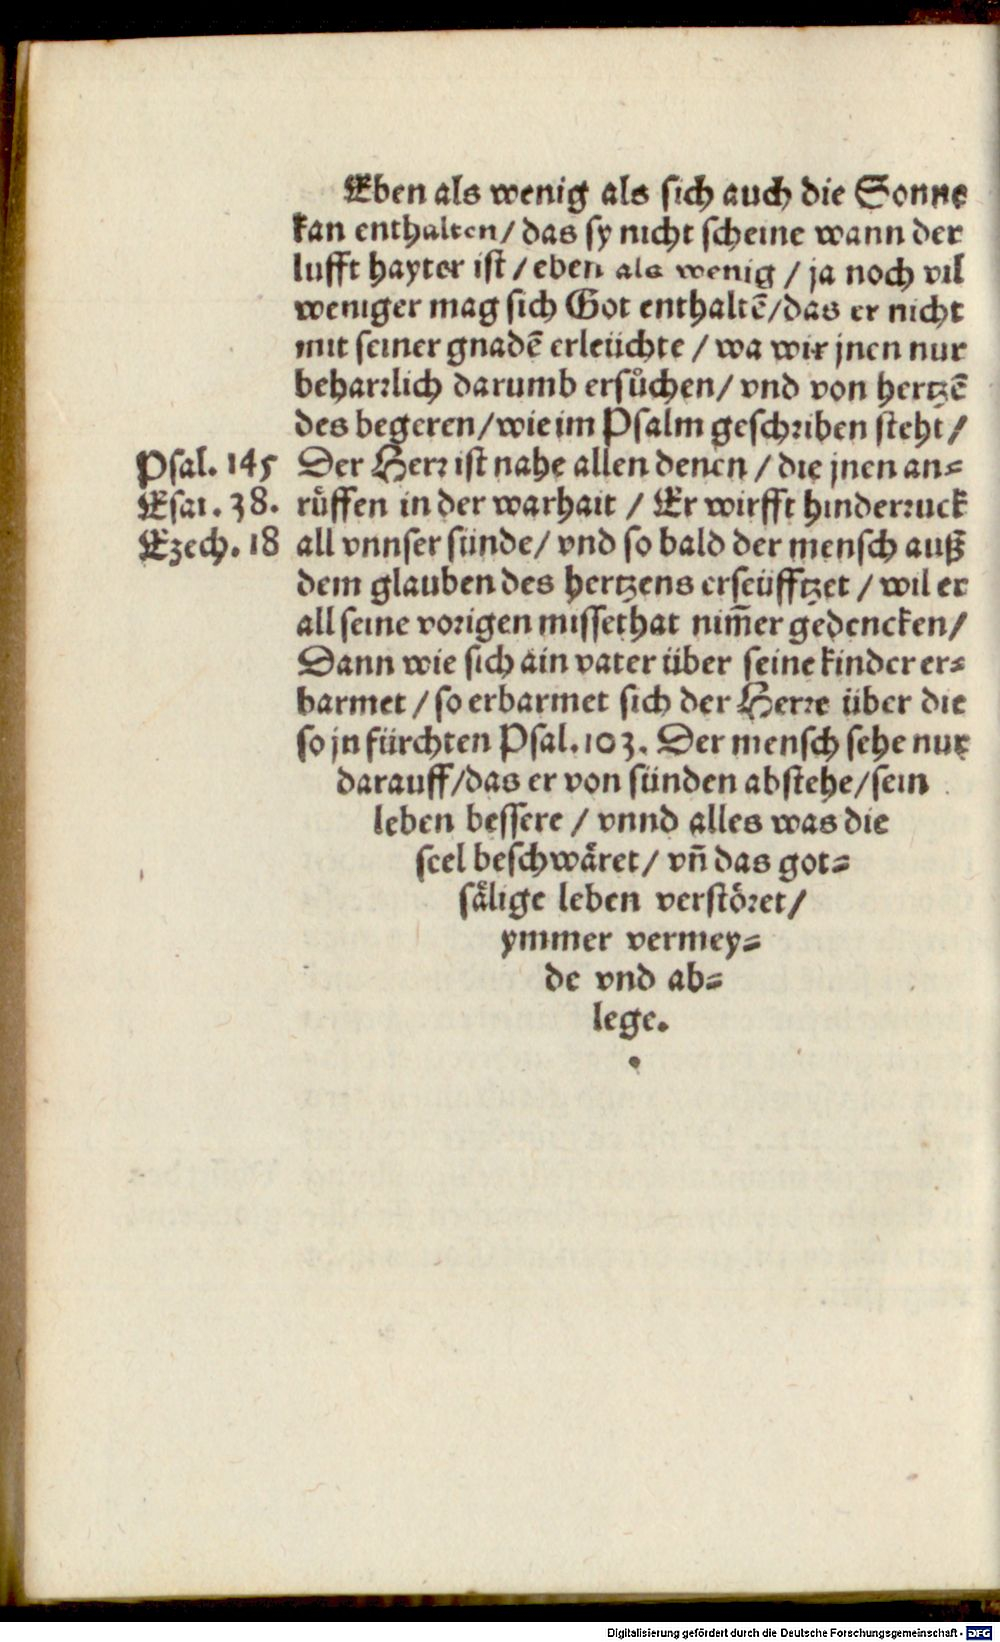 Eben als wenig als sich auch die Sonne
kan enthalten / das sy nicht scheine wann der
lufft hayter ist / eben als wenig / ja noch vil
weniger mag sich Got enthaltē / das er nicht
mit seiner gnadē erleüchte / wa wir jnen nur
beharrlich darumb ersůchen / vnd von hertzē
des begeren / wie im Psalm geschriben steht /
Psal. 145 Der Herr ist nahe allen denen / die jnen an-
Esai. 38. růffen in der warhait / Er wirfft hinderruck
Ezech. 18 all vnnser sünde / vnd so bald der mensch auß
dem glauben des hertzens erseüfftzet / wil er
all seine vorigen missethat nim̄er gedencken /
Dann wie sich ain vater über seine kinder er-
barmet / so erbarmet sich der Herre über die
so jn fürchten Psal. 103. Der mensch sehe nur
darauff / das er von sünden abstehe / sein
leben bessere / vnnd alles was die
seel beschwäret / vn̄ das got-
sälige leben verstöret /
ymmer vermey-
de vnd ab-
lege.
Digitalisierung gefördert durch die Deutsche Forschungsgemeinschaft - DFG